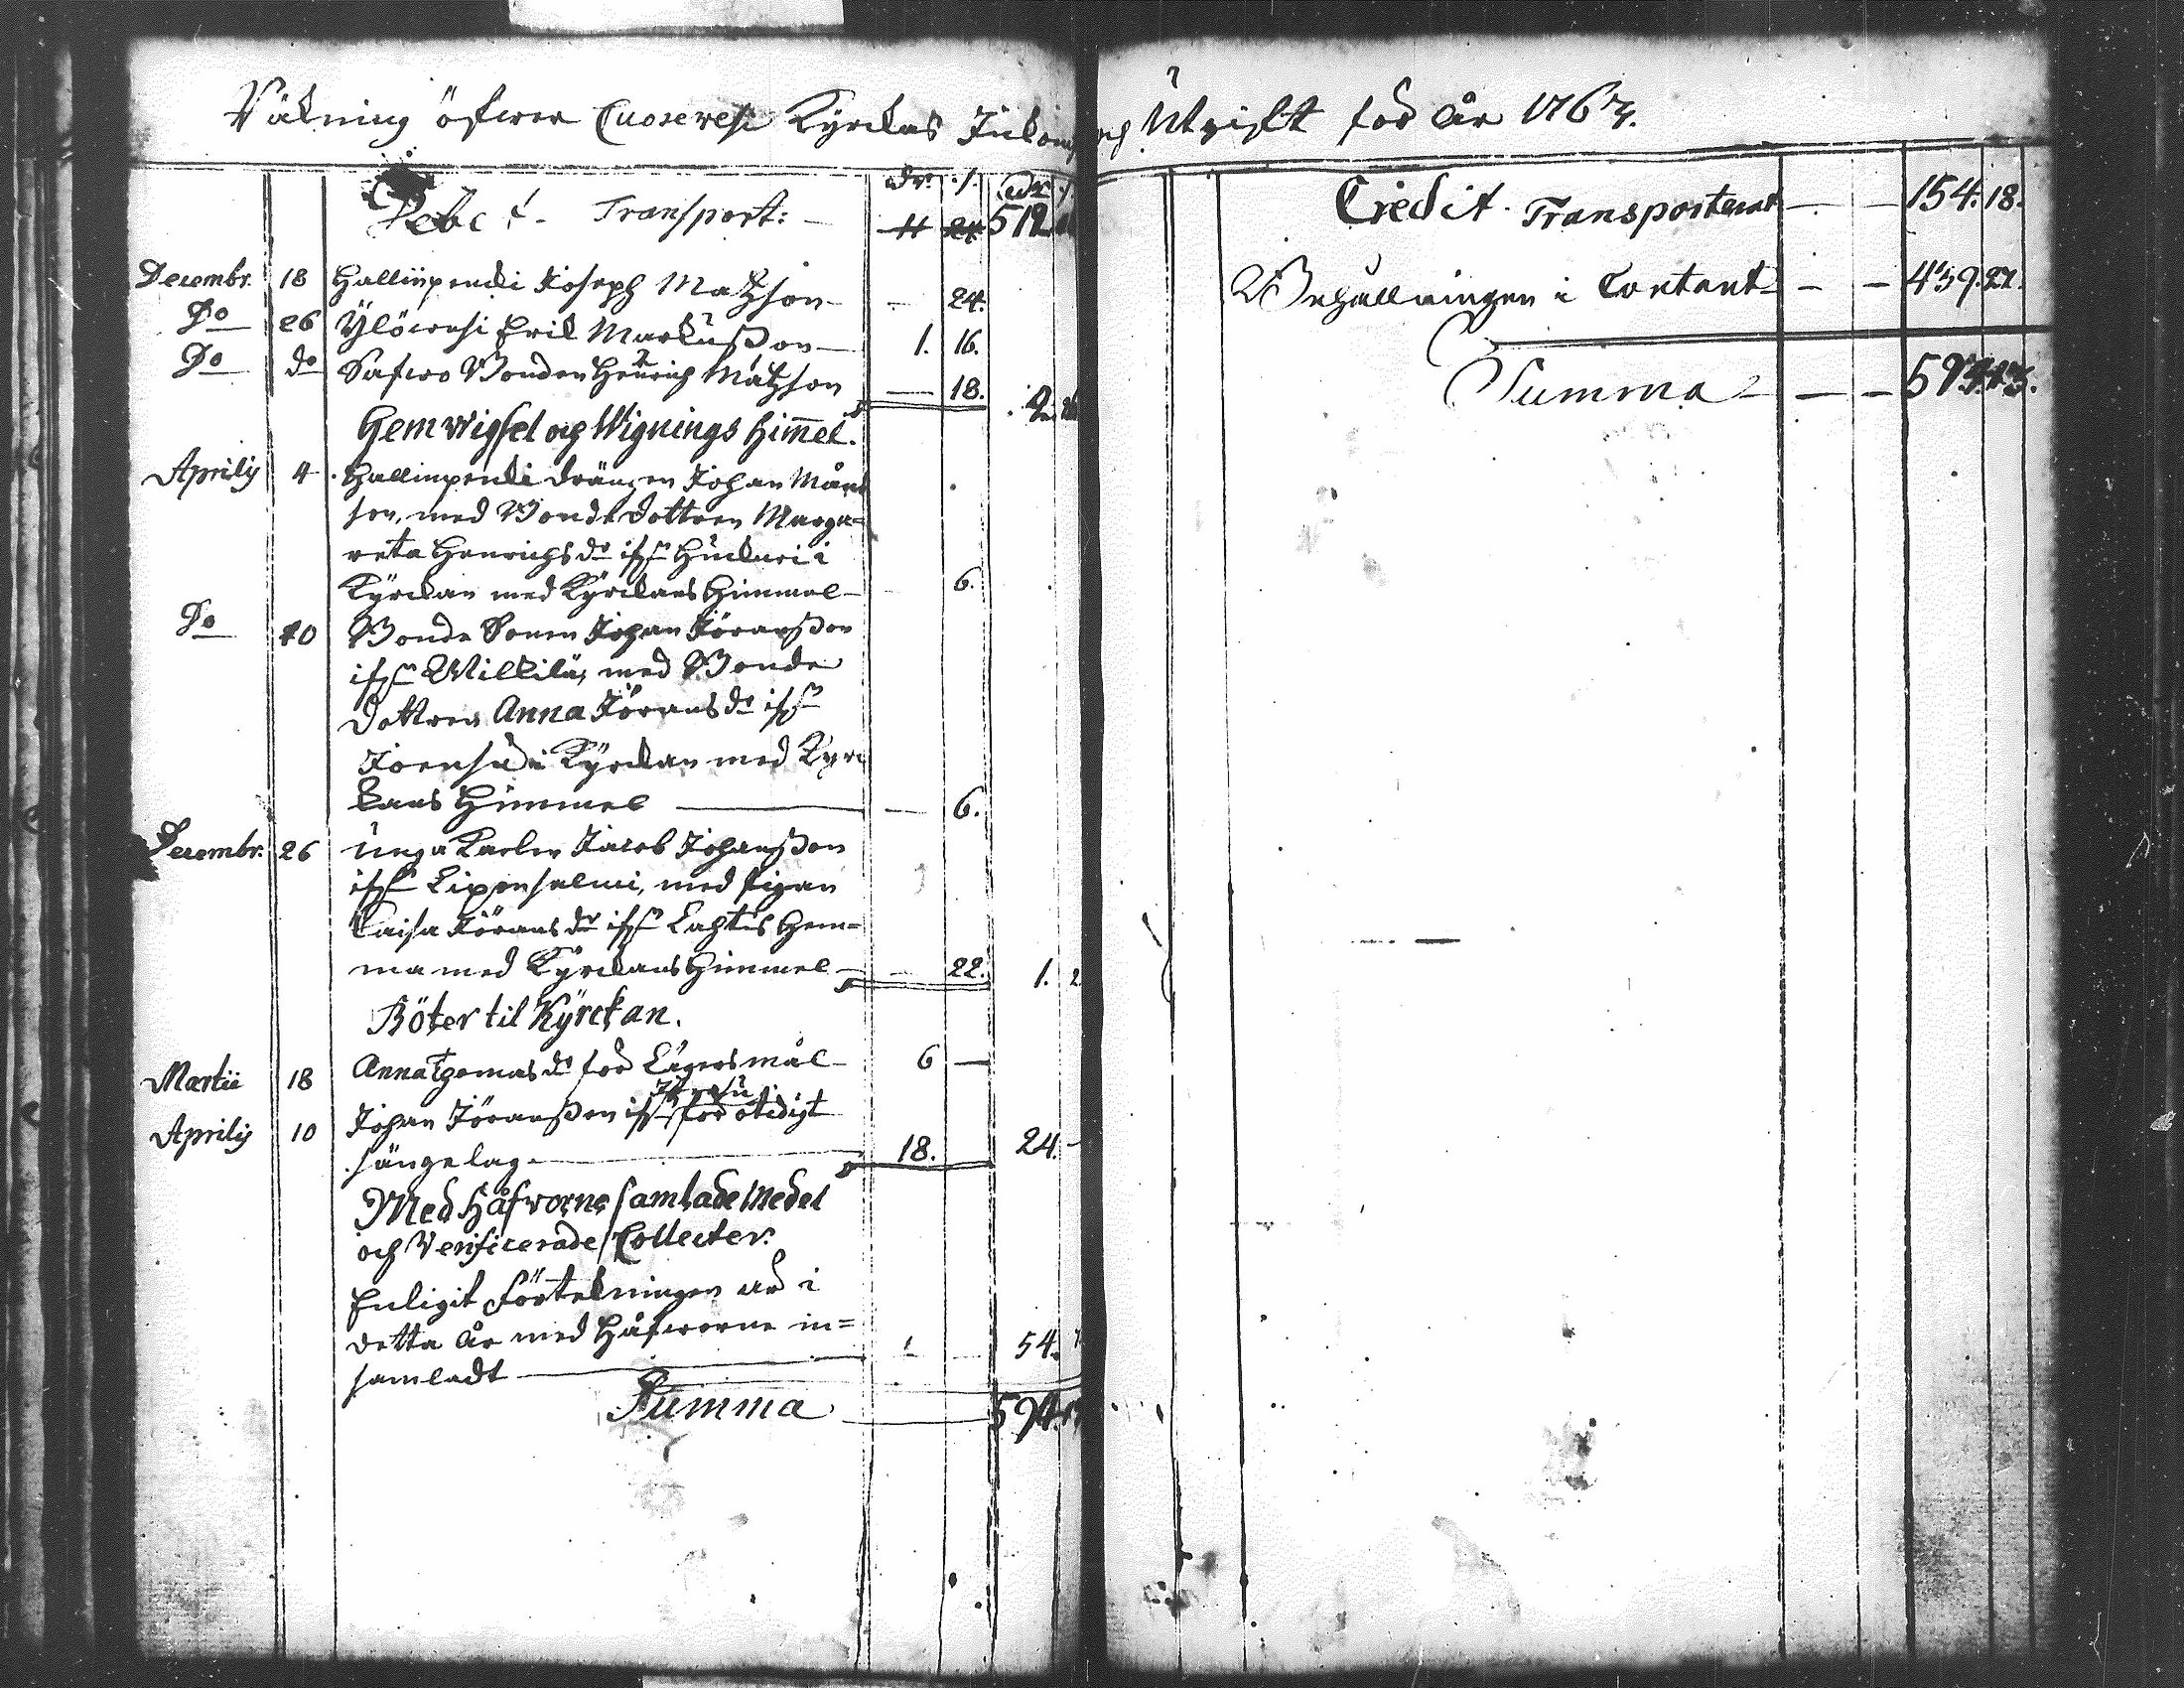 Räkning öfwer Cuorewesi Kyrckas Inkomst och Utgift för år 1767.
dr. s. dr s
Debet. Transport: — 11 24 512
Decembr. 18 Hallinpendi Joseph Matzson — 24.
Do 26 Ylöwesi Erik Markusson — 1. 16.
Do do Bonden Henrich Matzson — 18. 2.
Hemwigsel och Wignings himel.
Aprilis 4 Hallinpendi drängen Johan Måns
son, med Bonde dottren Marga=
reta Henrichsdr ifrån i
Kyrckan med Kyrckans Himmel — 6.
Do 10 Bonde Sonen Johan Göransson
ifrån Willilä, med Bonde
dottren Anna Göransdr ifrån
i Kyrckan med Kyrc
kans Himmel — 6.
Decembr. 26 Unga Karlen Jacob Johansson
ifrån Liponsalmi, med pigan
Caisa Göransdr ifrån Lahtis hem=
ma med Kyrckans Himmel — 22. 1. 2
Böter til Kyrckan.
Martii 18 Anna Thomasdr för Lägersmål — 6 —
Aprilis 10 Johan Göransson ifrån för otidigt
sängelag — 18. 24. —
Med Håfworne samlade Medel
och Verificerade Collecter.
Enligit förtekningen är i
detta år med Håfworne in=
samladt — 54.
Summa — 594.
Credit. Transporterat — — 154. 18.
Behållningen i Contant — — 439. 27.
Summa — — 594. 13.